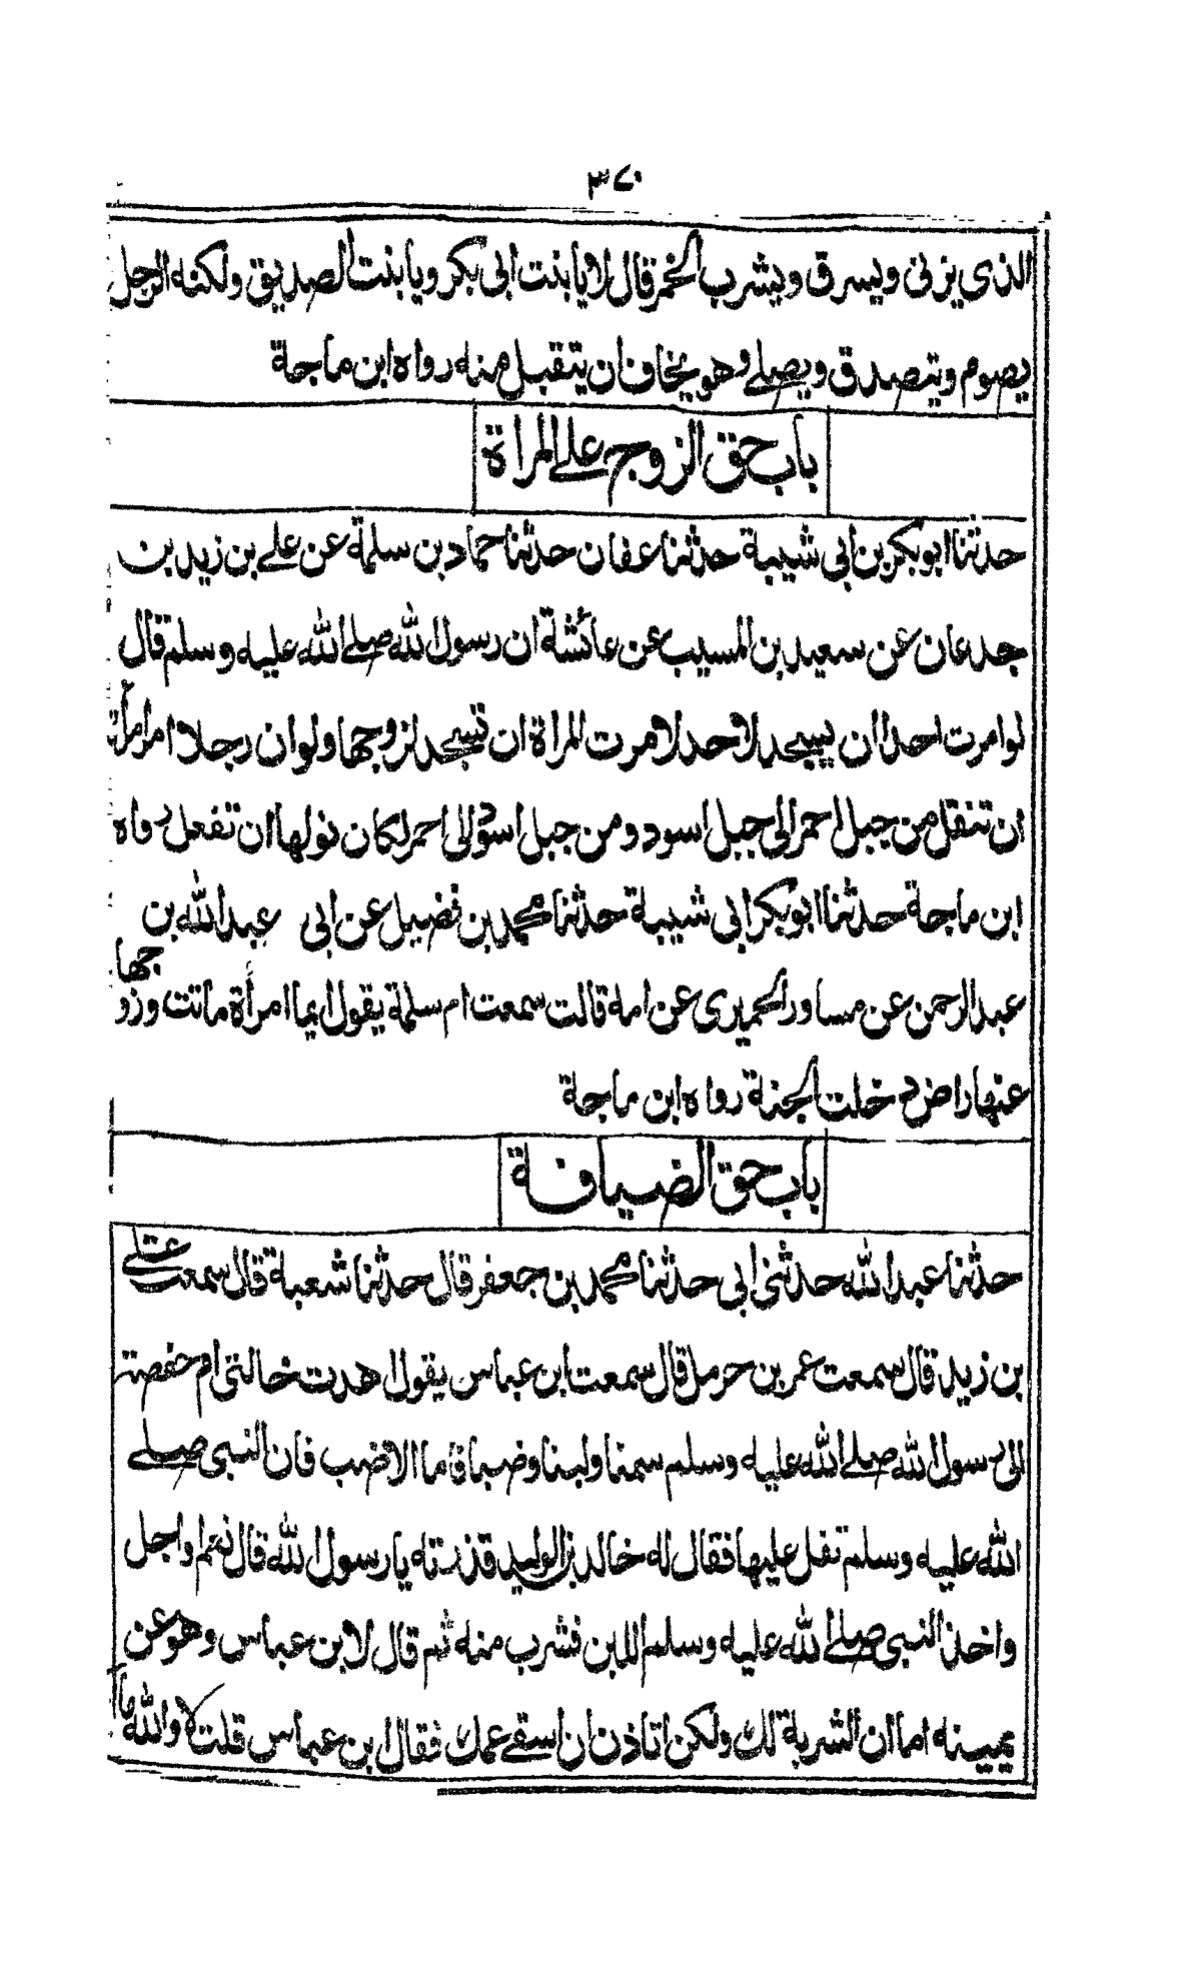 ٣٧٠
الذي يزنى ويسرق ويشرب الخمر قال لا يا بنت ابي بكر ويا بنت الصديق ولكنه الرجل
يصوم ويتصدق ويصلے وهو يخاف ان يتقبل منه رواه ابن ماجة
باب حق الزوج علے المراة
حدثنا ابو بكر بن ابي شيبة حدثنا عفان حدثنا حماد بن سلمة عن علے بن زيد بن
جدعان عن سعيد بن المسيب عن عائشة ان رسول الله صلے الله عليه وسلم قال
لو امرت احدا ان يسجد لاحد لامرت المراة ان تسجد لزوجها ولو ان رجلا امر امرأته
ان تنقل من جبل احمر الى جبل اسود ومن جبل اسود الى احمر لكان نولها ان تفعل رواه
ابن ماجة حدثنا ابو بكر ابي شيبة حدثنا محمد بن فضيل عن ابي عبد الله بن
عبد الرحمن عن مساور الحميرى عن امه قالت سمعت ام سلمة يقول ايما امرأة ماتت وزوجها
عنها راض دخلت الجنة رواه ابن ماجة
باب حق الضيافة
حدثنا عبد الله حدثنى ابي حدثنا محمد بن جعفر قال حدثنا شعبة قال سمعت علے
بن زيد قال سمعت عمر بن حرمل قال سمعت ابن عباس يقول اهدت خالتى ام حفصة
الى رسول الله صلے الله عليه وسلم سمنا ولبنا وضبا فاما الاضب فان النبي صلے
الله عليه وسلم تفل عليها فقال له خالد بن الوليد قذرته يا رسول الله قال نعم او اجل
واخذ النبي صلے الله عليه وسلم اللبن فشرب منه ثم قال لابن عباس وهو عن
يمينه اما ان الشربة لك ولكن اتاذن ان اسقے عمك فقال ابن عباس قلت لا والله ما